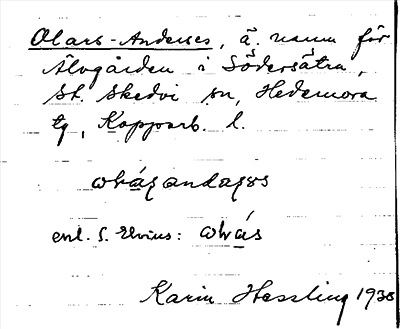 Olars-Anderses, ä. namn för
Älvgården i Södersätra,
St. Skedvi sn, Hedemora
tg, Kopparb. l.
enl. S. Elvius:
Karin Hessling 1938